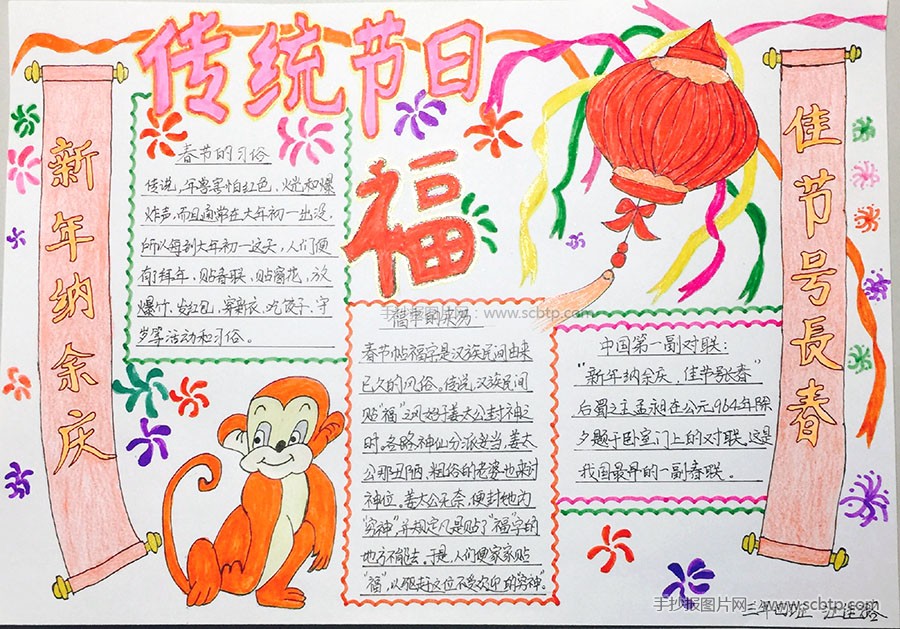 传统节日
新年纳余庆
佳节号長春
福
春节的习俗
传说,年兽害怕红色,火光和爆
炸声,而且通常在大年初一出没,
所以每到大年初一这天,人们便
有拜年,贴春联,贴窗花,放
爆竹,发红包,穿新衣,吃饺子,守
岁等活动和习俗。
手抄报图片网:www.scbtp.com
福字的来历
春节帖福字是汉族民间由来
已久的风俗。传说,汉族民间
贴"福"之风始于姜太公封神之
时。各路神仙分派妥当,姜太
公那丑陋、粗俗的老婆也来讨
神位。姜太公无奈,便封她为
"穷神",并规定凡是贴了"福"字的
地方不能去。于是,人们便家家贴
"福",以驱赶这位不受欢迎的"穷神"。
中国第一副对联:
"新年纳余庆,佳节号长春"
后蜀之主孟昶在公元964年除
夕题于卧室门上的对联,这是
我国最早的一副春联。
三年四班
手抄报图片网:www.scbtp.com